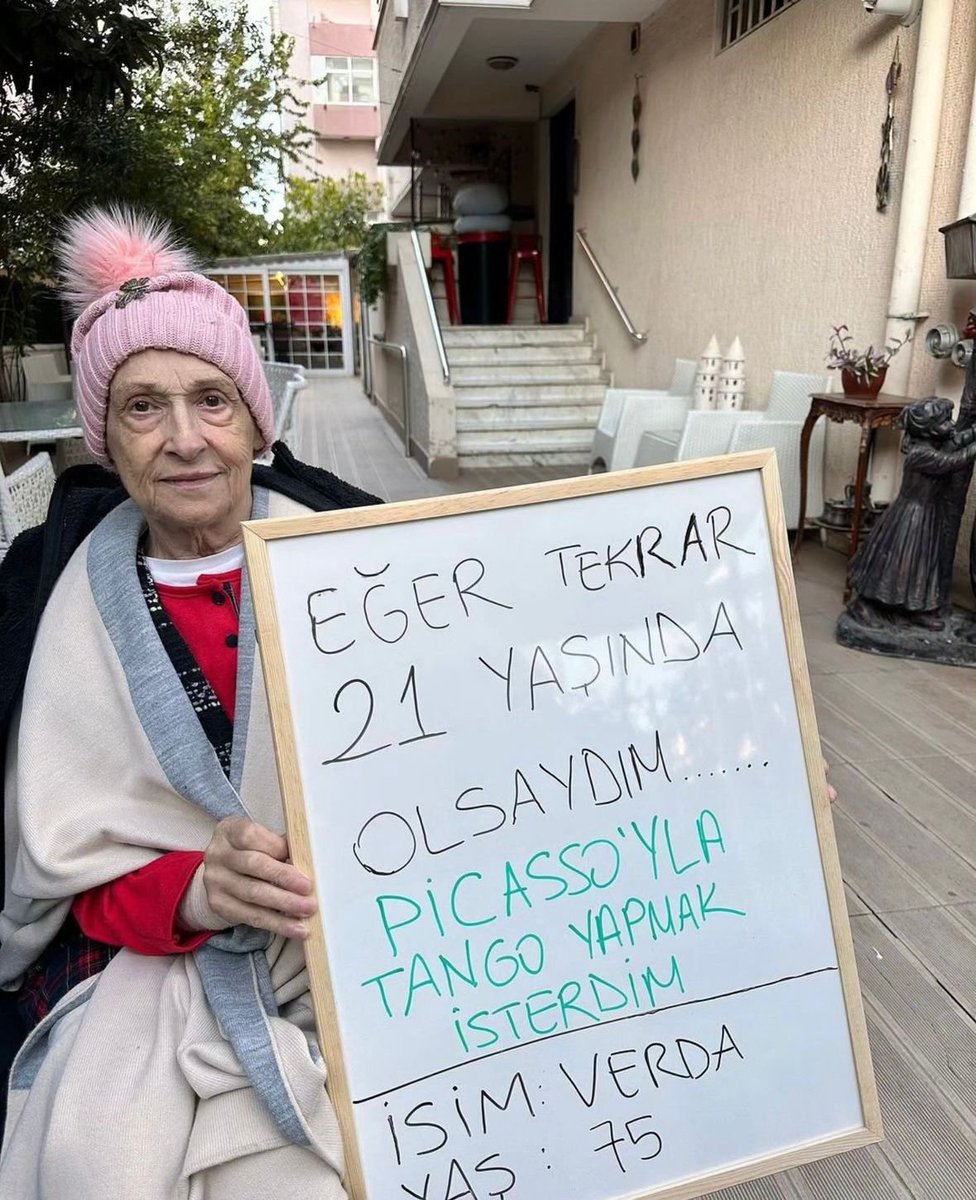 EĞER TEKRAR
21 YAŞINDA
OLSAYDIM.......
PİCASSO'YLA
TANGO YAPMAK
İSTERDİM
İSİM: VERDA
YAŞ : 75